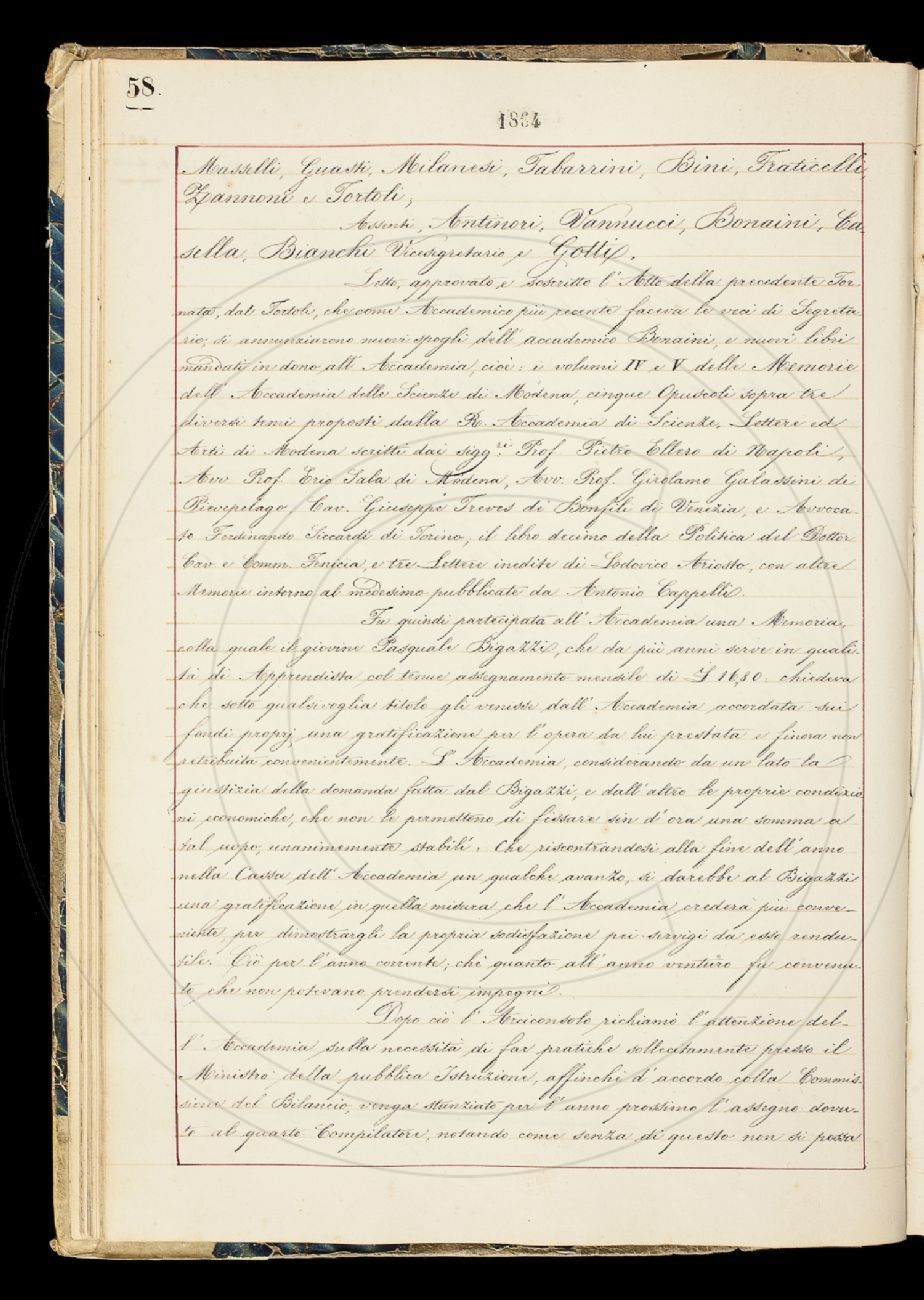 58.
1864
Masselli, Guasti, Milanesi, Tabarrini, Bini, Fraticelli,
Zannoni e Tortoli;
Assenti, Antinori, Vannucci, Bonaini, Ca-
sella, Bianchi Vicesegretario e Gotti.
Letto, approvato, e soscritto l'Atto della precedente Tor-
nata, dal Tortoli, che come Accademico più recente faceva le veci di Segreta
rio; si annunziarono nuovi spogli dell'accademico Bonaini, e nuovi libri
mandati in dono all'Accademia, cioè: i volumi IV e V delle Memorie
dell'Accademia delle Scienze di Modena, cinque Opuscoli sopra tre
diversi temi proposti dalla R. Accademia di Scienze, Lettere ed
Arti di Modena scritti dai Sigg.ri Prof Pietro Ellero di Napoli,
Avv Prof Erio Sala di Modena, Avv. Prof. Girolamo Galassini di
Pievepelago Cav. Giuseppe Treves de Bonfili di Venezia, e Avvoca-
to Ferdinando Siccardi di Torino; il libro decimo della Politica del Dottor
Cav e Comm. Fenicia, e tre Lettere inedite di Lodovico Ariosto, con altre
Memorie intorno al medesimo pubblicate da Antonio Cappelli.
Fu quindi partecipata all'Accademia una Memoria,
colla quale il giovine Pasquale Bigazzi, che da più anni serve in quali-
tà di Apprendista col tenue assegnamento mensile di £ 16,80. chiedeva
che sotto qualsivoglia titolo gli venisse dall'Accademia accordata sui
fondi proprj una gratificazione per l'opera da lui prestata e finora non
retribuita convenientemente. L'Accademia, considerando da un lato la
giustizia della domanda fatta dal Bigazzi, e dall'altro le proprie condizio
ni economiche, che non le permettono di fissare sin d'ora una somma a
tal uopo, unanimemente stabilì: Che riscontrandosi alla fine dell'anno
nella Cassa dell'Accademia un qualche avanzo, si darebbe al Bigazzi
una gratificazione in quella misura che l'Accademia crederà più conve-
niente per dimostrargli la propria sodisfazione pei servigi da esso rendu-
tile. Ciò per l'anno corrente; chè quanto all'anno venturo fu convenu-
to che non potevano prendersi impegni.
Dopo ciò l'Arciconsolo richiamò l'attenzione del-
l'Accademia sulla necessità di far pratiche sollecitamente presso il
Ministro della pubblica Istruzione, affinchè d'accordo colla Commis-
sione del Bilancio, venga stanziato per l'anno prossimo l'assegno dovu-
to al quarto Compilatore, notando come senza di questo non si possa